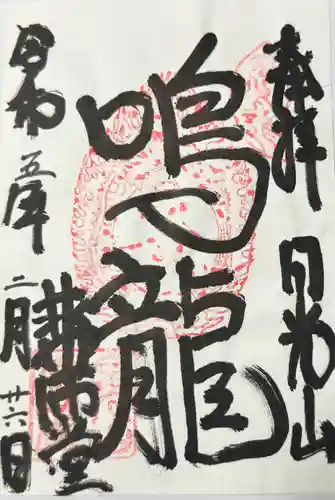 奉拝
日光山
鳴龍
藥師堂
令和五年
二月廿六日